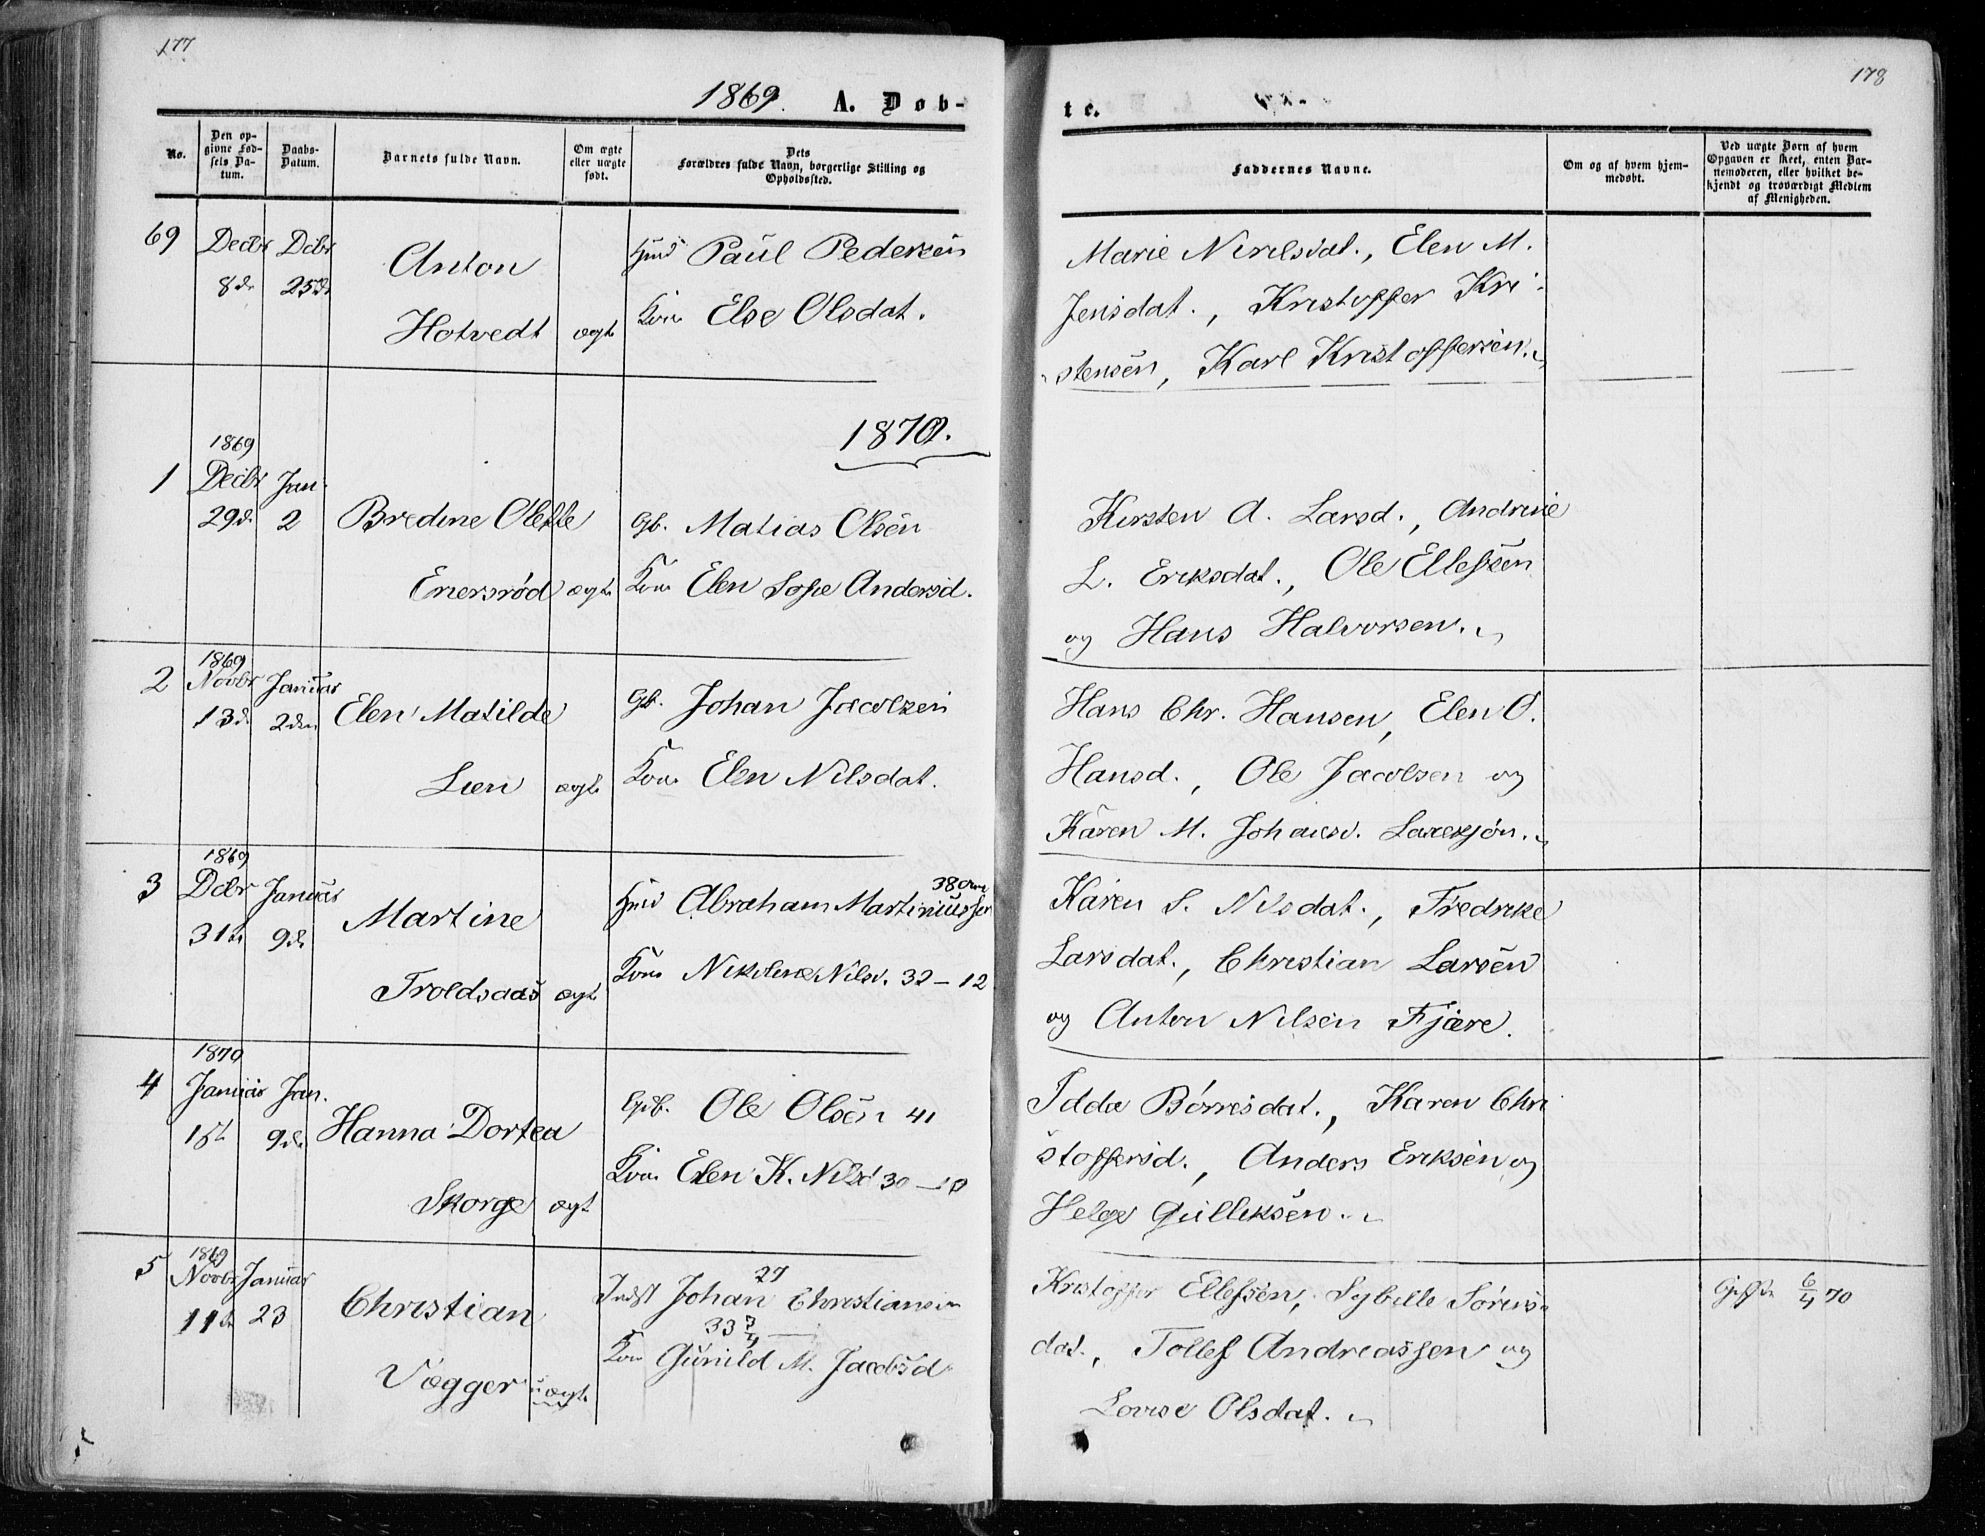 177
1869. A. Døb-
No.
Den opgivne Fødsels Datum.
Daabs-Datum.
Barnets fulde Navn.
Om ægte eller uægte født.
Dets Forældres fulde Navn, borgerlige Stilling og Opholdssted.
69 Decbr Dcbr Anton Hmd Paul Pedersen
8de 25de Hotvedt ægte Kone Else Olsdat.
1870.
1869
1 Decbr Jan. Bredine Olette Gb. Matias Olsen
29de 2 Enersrød ægte Kone Elen Sofie Andersd.
1869
2 Novbr Januar Elen Matilde Gb. Johan Jacobsen
13de 2den Lien ægte Kone Elen Nilsdat.
1869
3 Dcbr Januar Martine Hmd Abraham Martiniussen 38
31te 9de Troldsaas ægte Kone Nikoline Nilsd. 32 – 12
1870
4 Januar Jan. Hanna Dortea Gdb. Ole Olsen 41
1ste 9de Skorge ægt Kone Elen K. Nilsd 30 – 10
1869
5 Novbr Januar Christian Indst Johan Christiansen 27
11te 23 Vegger uægte Kone Gunild M. Jacobsd 33 3/4
178
te.
Faddernes Navne.
Om og af hvem hjemmedøbt.
Ved uægte Born af hvem Opgaven er skeet, enten Barnemoderen, eller hvilket bekjendt og troværdigt Medlem af Menigheden.
Marie Nirilsdat., Elen M.
Jensdat., Kristoffer Kri-
stensen, Karl Kristoffersen.
Kirsten A. Larsd., Andrine
L. Eriksdat., Ole Ellefsen
og Hans Halvorsen.
Hans Chr. Hansen, Elen O.
Hansd., Ole Jacobsen og
Karen M. Johansd.
Karen S. Nilsdat., Fredrike
Larsdat., Christian Larsen
og Anton Nilsen Fjære.
Idda Børresdat., Karen Chri
stoffersd., Anders Eriksen og
Helge Gulliksen.
Kristoffer Ellefsen, Sybille Sørens-
dat., Tollef Andreassen og
Lovise Olsdat.
6/4 70